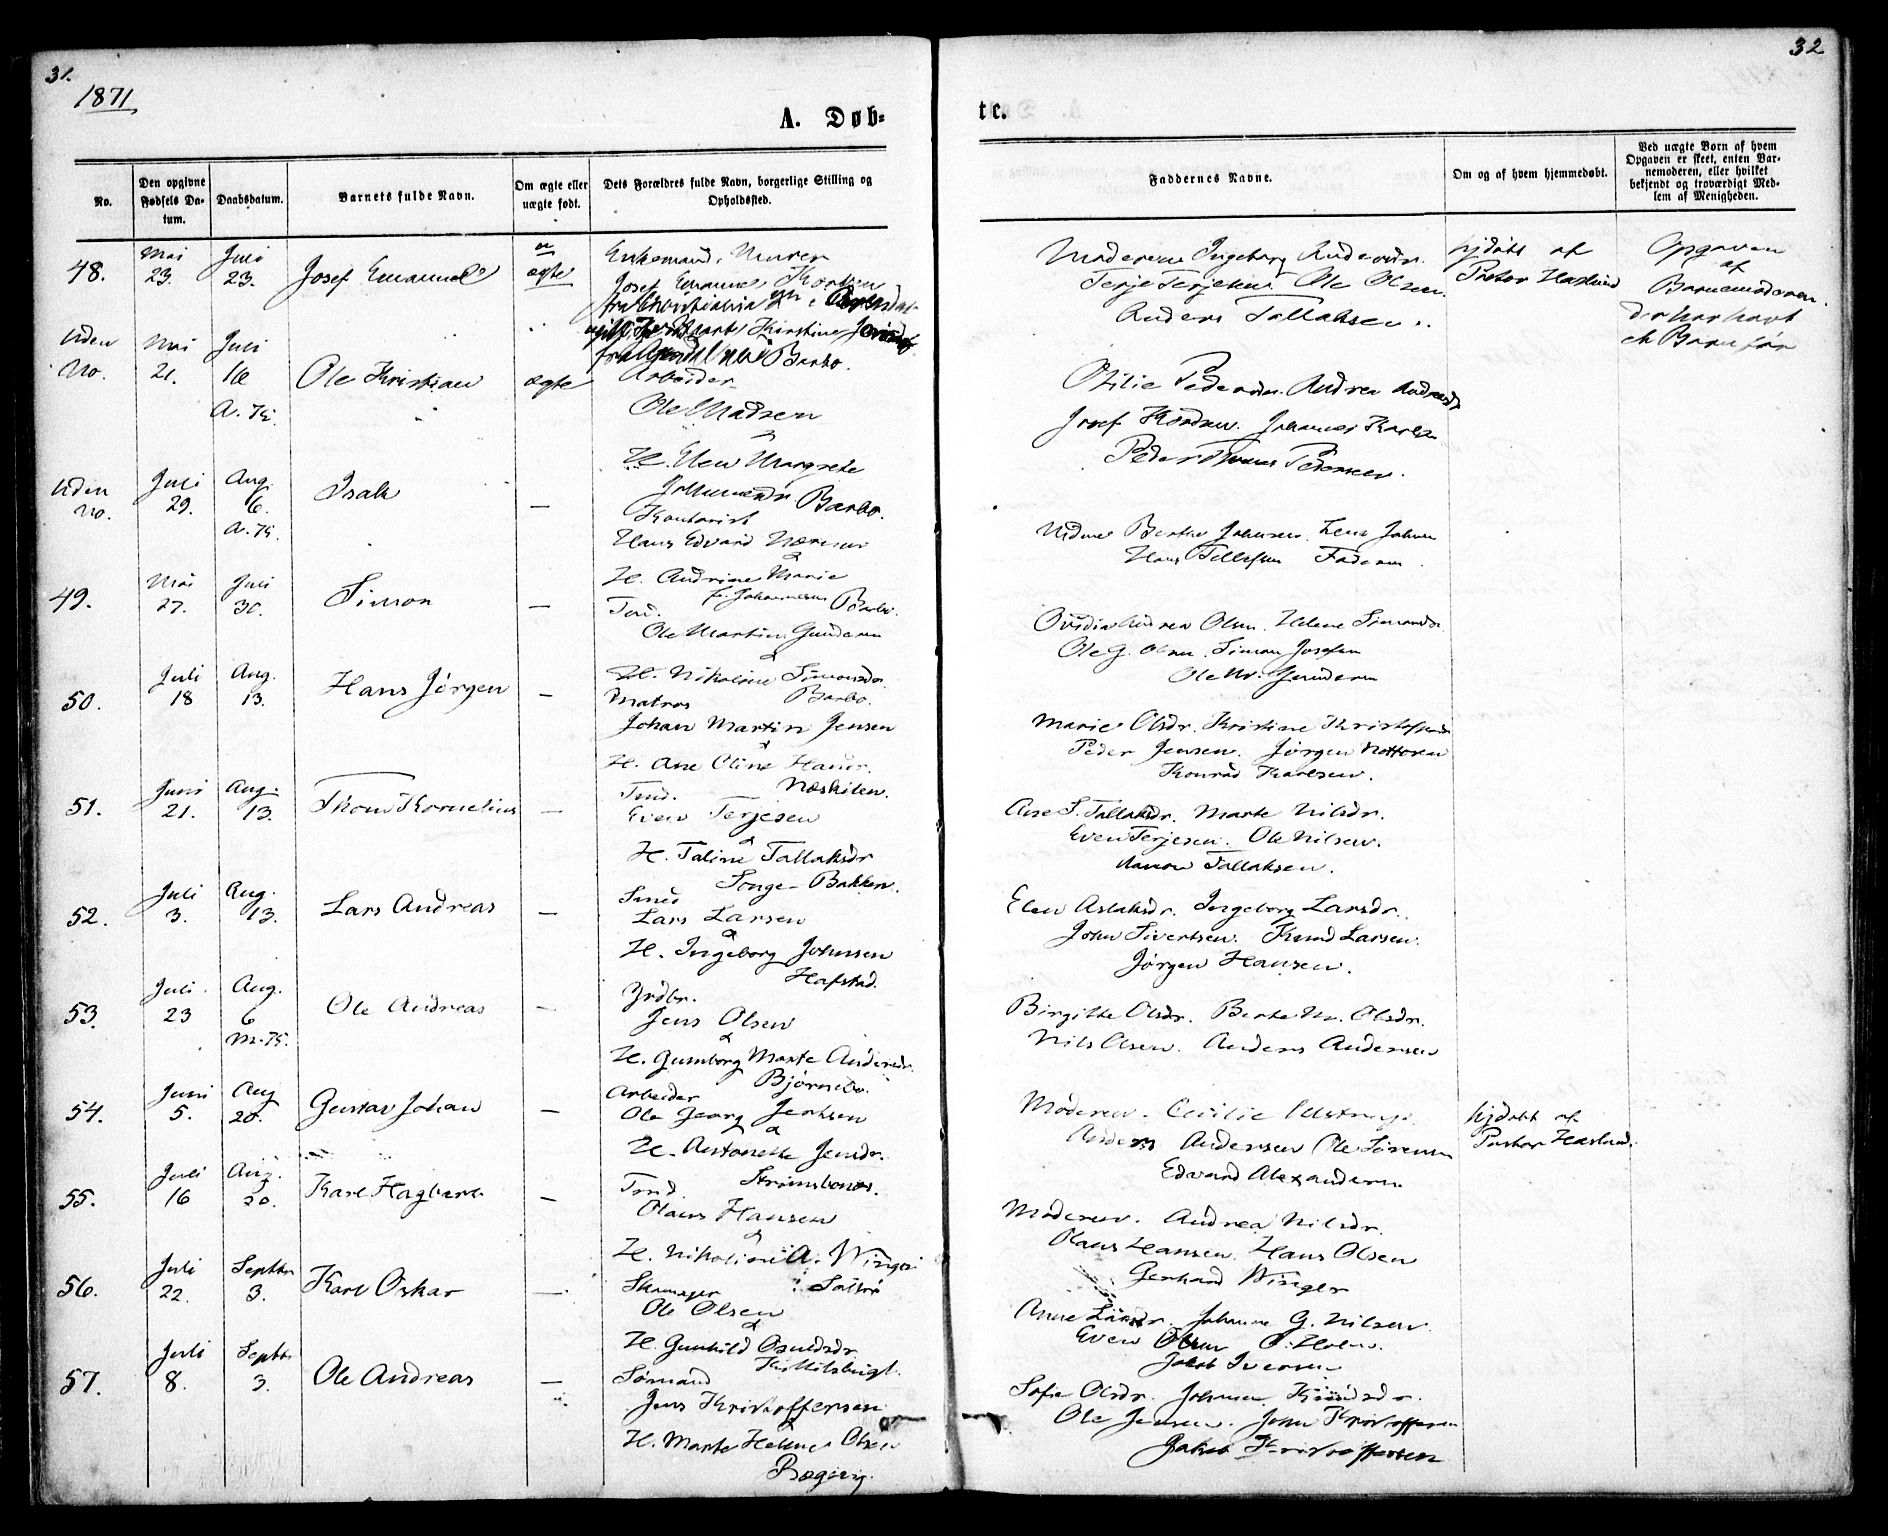 31.
1871
A. Døb-
No.
Den opgivne Fødsels Da-tum.
Daabsdatum.
Barnets fulde Navn.
Om ægte eller uægte født.
Dets Forældres fulde Navn, borgerlige Stilling og Opholdssted.
48.
Mai 23.
Juli 23.
Josef Emanuel
u
ægte
Enkemand, Murer
Josef Emanuel
fra Christiania
Kirstine
Barbo.
Uden No.
Mai 21.
Juli 16
A. K.
Ole Kristian
ægte
Arbeider
Ole Madsen
&
H. Elen Margrete
Barbo.
Uden No.
Juli 29.
Aug. 6.
A. K.
Isak
—
Kontorist
Hans Edvard
&
H. Andrine Marie
f. Johannesen Barbo.
49.
Mai 27.
Juli 30.
Simon
—
Tmd.
Ole Martin Gundersen
&
H. Nikoline Simonsdr.
Barbo.
50.
Juli 18
Aug. 13.
Hans Jørgen
—
Matros
Johan Martin Jensen
&
H. Ane Oline Hansdr.
Næskilen.
51.
Juni 21.
Aug. 13.
Thom Kornelius
—
Tmd.
Even Terjesen
&
H. Taline Tallaksdr
Songe-Bakken.
52.
Juli 3.
Aug. 13.
Lars Andreas
—
Smed
Lars Larsen
&
H. Ingeborg Johnssen
Hafstad.
53.
Juli 23
Aug. 6
M. K.
Ole Andreas
—
Grdbr.
Jens Olsen
&
H. Gumborg Marte Andersdr.
Bjørnebo.
54.
Juni 5.
Aug 20.
Gustav Johan
—
Arbeider
Ole Georg Jenssen
&
H. Antonette Jensdr.
Strømsbones.
55.
Juli 16
Aug. 20.
Karl Hagbart
—
Tmd.
Olaus Hansen
&
H. Nikoline A. Winger
Saltrø
56.
Juli 22.
Septbr 3.
Karl Oskar
—
Skomager
Ole Olsen
&
H. Gunhild Osuldsdr.
Kittilsbugt.
57.
Juli 8.
Septbr 3.
Ole Andreas
—
Sømand
Jens Kristoffersen
&
H. Marte Helene Olsen
32
te.
Faddernes Navne.
Om og af hvem hjemmedøbt.
Ved uægte Børn af hvem Opgaven er skeet, enten Bar-nemoderen, eller hvilket bekjendt og troværdigt Med-lem af Menigheden.
Moderen Ingeborg Andersdr.
Terje Terjesen Ole Olsen.
Anders Tallaksen.
hjdøbt af
Pastor Haslund
Opgaven
af
Barnemoderen.
der har havt
et Barn før
Otilie Pedersdr. Andrea Andreasdr
Josef Johannes Karlsen
Peder Thomas Pedersen.
Berthe Johnsen. Lena Johnsen
Hans Tellefsen Faderen.
Ovidia Andrea Olsen. Helene Simonsdr.
Ole G. Olsen. Simon Josefsen
Ole M. Gundersen
Marie Olsdr. Kristine Kristoffersdr
Peder Jensen. Jørgen
Konrad Karlsen.
Ane S. Tallaksdr. Marte Nilsdr.
Even Terjesen. Ole Nilsen.
Tallaksen.
Elen Aslaksdr. Ingeborg Larsdr.
John Sivertsen. Knud Larsen.
Jørgen Hansen.
Birgitte Olsdr. Berte M. Olsdr.
Nils Olsen. Anders Andersen
Moderen. Cecilie
Anders Andersen Ole Sørensen
Edvard Alexandersen.
hjdøbt af
Pastor Haslund.
Moderen. Andrea Nilsdr.
Olaus Hansen. Hans Olsen
Gerhard Winger
Anne Larsdr. Johanne G. Nilsen.
Even Olsen O. Holm.
Jakob Iversen
Sofie Olsdr. Johanne
Ole Jensen. John Kristoffersen
Jakob Kristoffersen